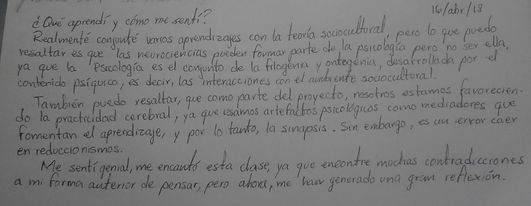 16/abr/18
¿Qué aprendí y cómo me sentí?
Realmente conjunté varios aprendizajes con la teoría sociocultural, pero lo que puedo
resaltar es que las neurociencias pueden formar parte de la psicología pero no ser ella,
ya que la Psicología es el conjunto de la filogenia y ontogenia, desarrollada por el
contenido psíquico, es decir, las interacciones con el ambiente sociocultural.
También puedo resaltar, que como parte del proyecto, nosotros estamos favorecien-
do la practicidad cerebral, ya que usamos artefactos psicológicos como mediadores que
fomentan el aprendizaje, y por lo tanto, la sinapsis. Sin embargo, es un error caer
en reduccionismos.
Me sentí genial, me encantó esta clase, ya que encontre muchas contradicciones
a mi forma anterior de pensar, pero ahora, me han generado una gran reflexión.